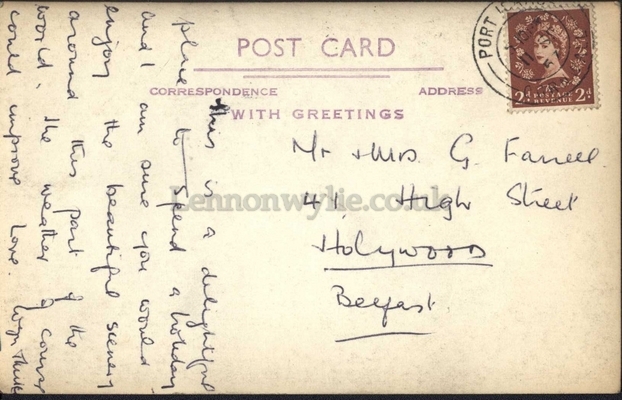 POST CARD
CORRESPONDENCE
ADDRESS
WITH GREETINGS
PORT
2d POSTAGE REVENUE 2d
This is a delightful
place to spend a holiday
and I am sure you would
enjoy the beautiful scenery
around this part of the
world. The weather of course
could improve Love
Mr & Mrs. G. Farrell
41 High Street
Holywood
Belfast.
Lennonwylie.co.uk